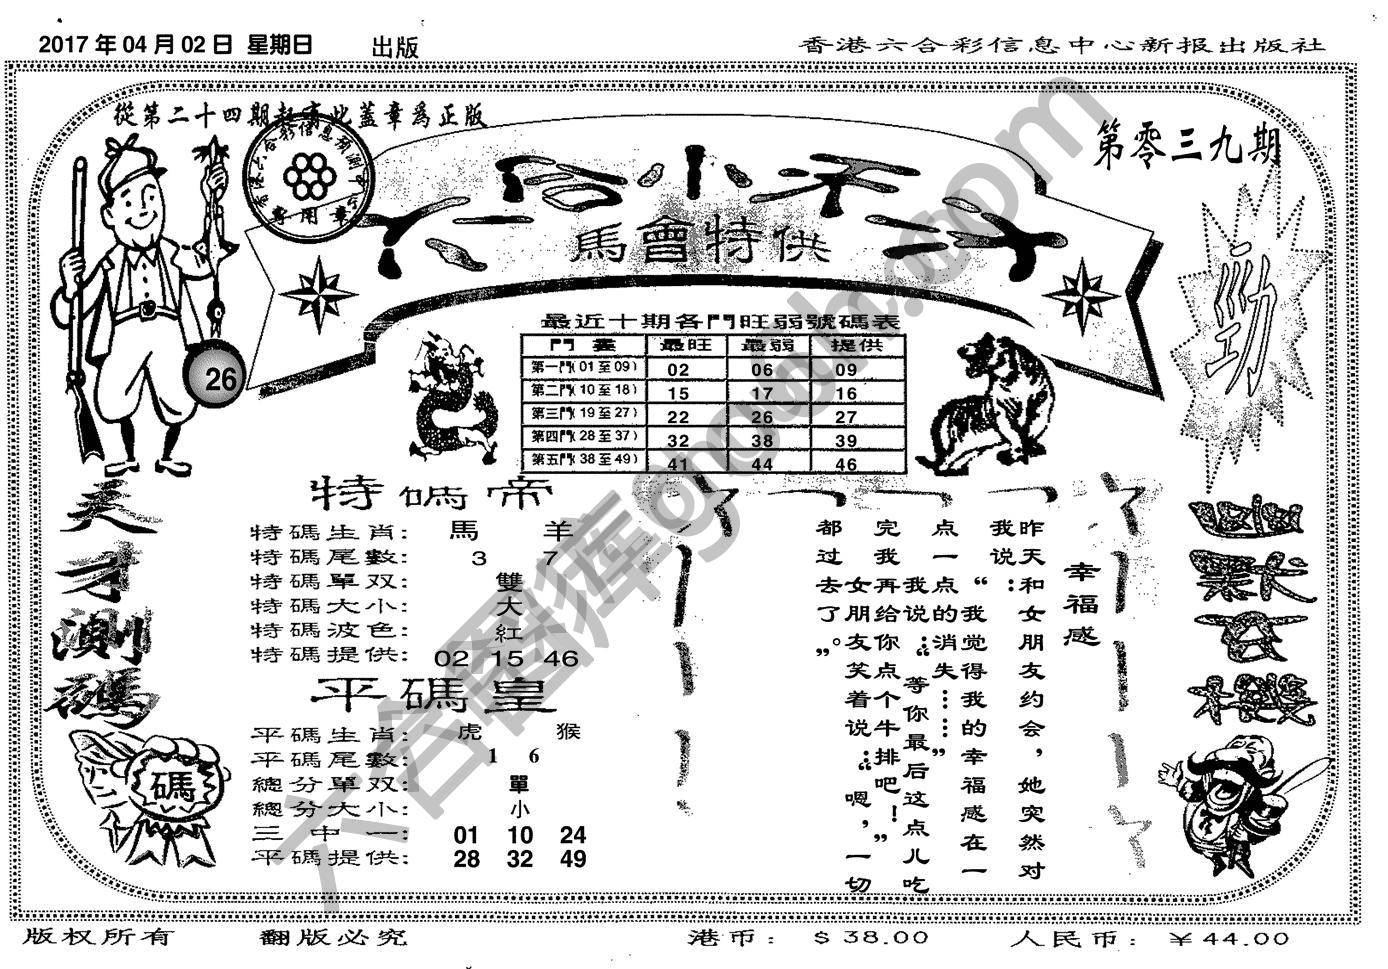 2017 年 04 月 02 日 星期日 出版
香港六合彩信息中心新报出版社
從第二十四期起有此蓋章爲正版
第零三九期
六合小子
馬會特供
專用章
26
勁
最近十期各門旺弱號碼表
門 最旺 最弱 提供
第一門(01至09) 02 06 09
第二門(10至18) 15 17 16
第三門(19至27) 22 26 27
第四門(28至37) 32 38 39
第五門(38至49) 41 44 46
天才測碼
碼
特碼帝
特碼生肖: 馬 羊
特碼尾數: 3 7
特碼單双: 雙
特碼大小: 大
特碼波色: 紅
特碼提供: 02 15 46
平碼皇
平碼生肖: 虎 猴
平碼尾數: 1 6
總分單双: 單
總分大小: 小
三中一: 01 10 24
平碼提供: 28 32 49
幸福感
昨天和女朋友约会，她突然对
我说：“我觉得我的幸福感在一
点一点的消失……”
我说：“等你最后这点儿吃
完我再给你点个牛排吧！”
女朋友笑着说：“嗯，一切
都过去了。”
六合图库
版权所有 翻版必究 港币: $38.00 人民币: ￥44.00